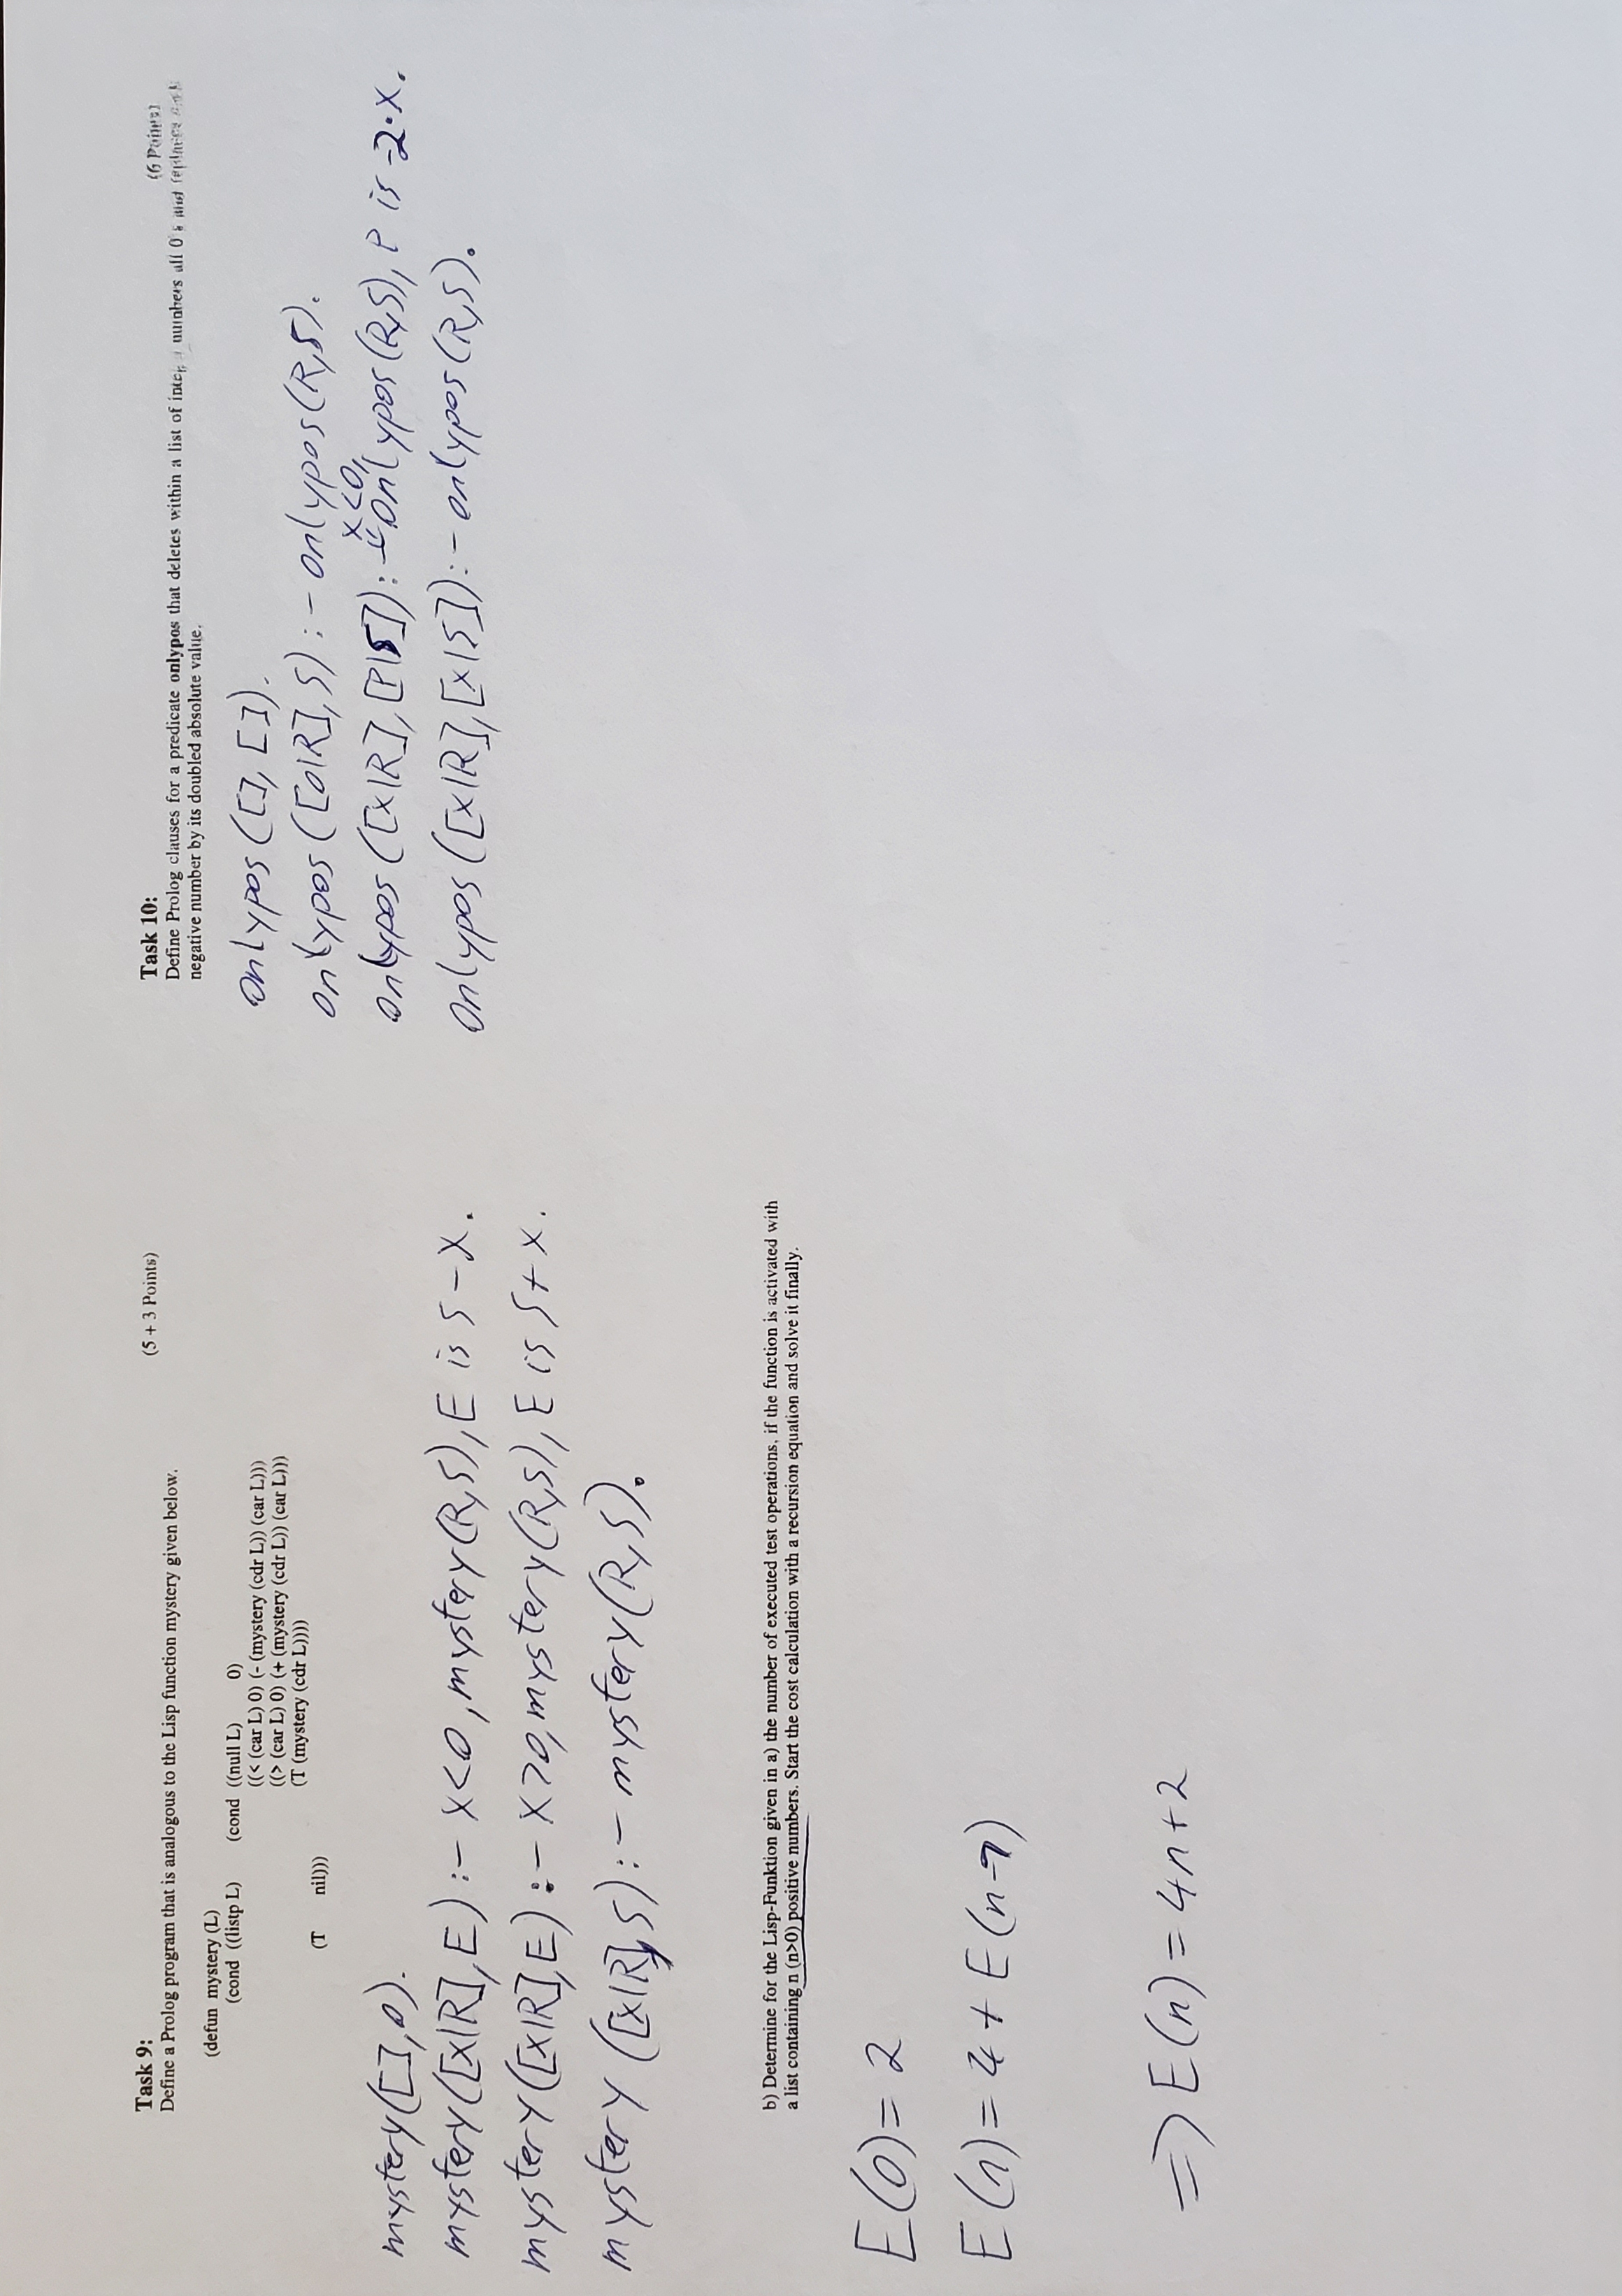 Task 9: (5 + 3 Points)
Define a Prolog program that is analogous to the Lisp function mystery given below.
(defun mystery (L)
(cond ((listp L) (cond ((null L) 0)
((< (car L) 0) (- (mystery (cdr L)) (car L)))
((> (car L) 0) (+ (mystery (cdr L)) (car L)))
(T (mystery (cdr L))))
(T nil)))
mystery([],0).
mystery([X|R],E) :- X<0, mystery(R,S), E is S-X.
mystery([X|R],E) :- X>0, mystery(R,S), E is S+X.
mystery([X|R],S) :- mystery(R,S).
b) Determine for the Lisp-Funktion given in a) the number of executed test operations, if the function is activated with
a list containing n (n>0) positive numbers. Start the cost calculation with a recursion equation and solve it finally.
E(0) = 2
E(n) = 4 + E(n-1)
=> E(n) = 4n+2
Task 10: (6 Points)
Define Prolog clauses for a predicate onlypos that deletes within a list of numbers all 0's and replaces each
negative number by its doubled absolute value.
onlypos([],[]).
onlypos([0|R],S) :- onlypos(R,S).
X<0,
onlypos([X|R],[P|S]) :- onlypos(R,S), P is -2·X.
onlypos([X|R],[X|S]) :- onlypos(R,S).